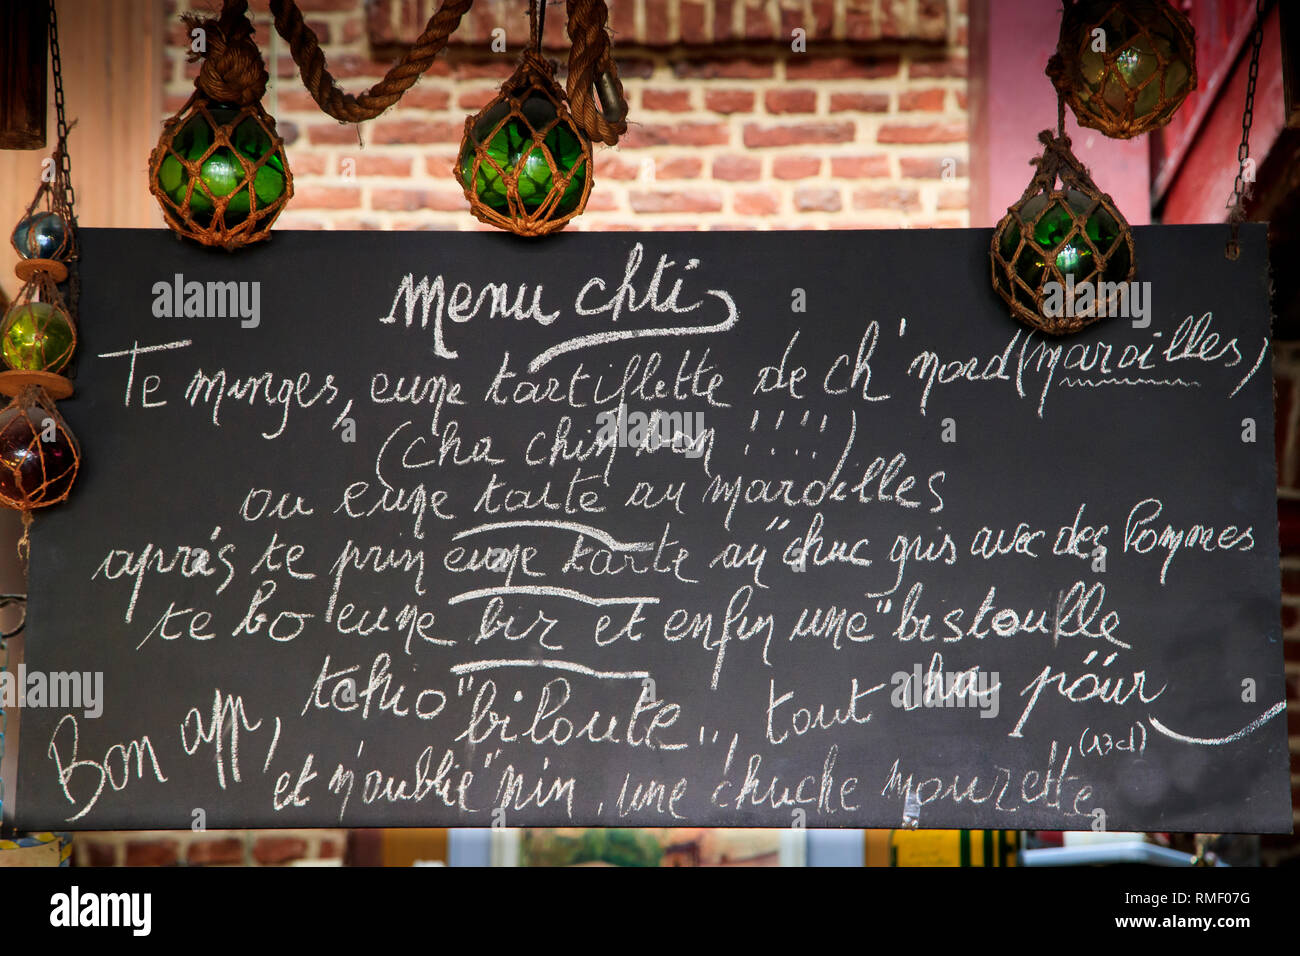 menu chti
Te minges, eune tartiflette de ch'nord (maroilles)
(cha chin bon !!!!)
ou eune tarte au maroilles
après te prin eune tarte au "chuc gris avec des pommes
te bo eune bir et enfin une "bistoulle
tchio "biloute", tout cha pour
Bon app, et n'oublie "nin, une "chuche mourette" (13 cl)
alamy
alamy
Image ID: RMF07G
www.alamy.com